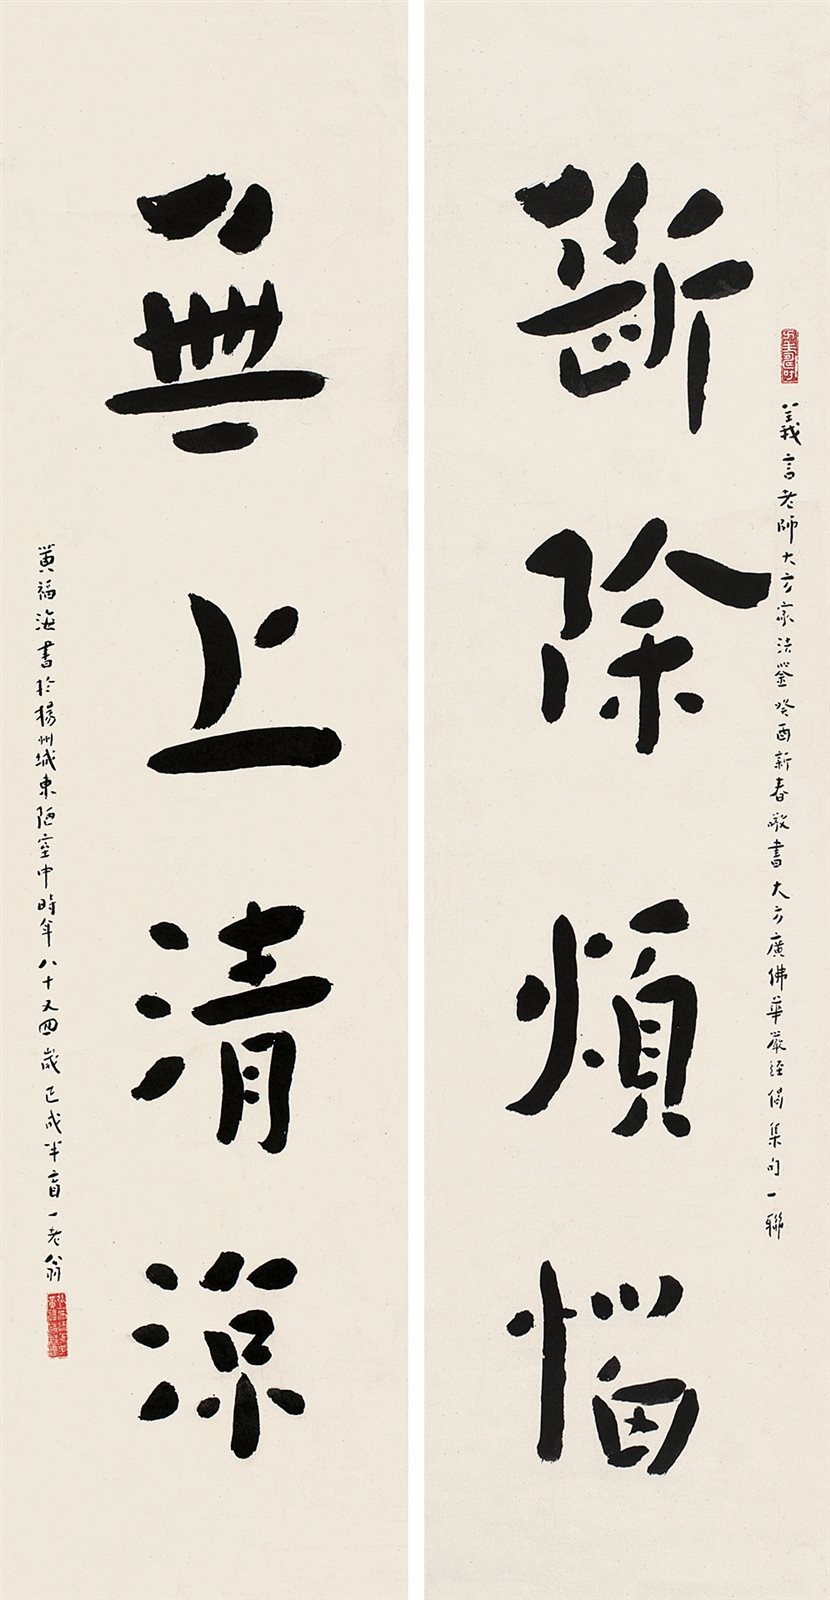 斷除煩惱
義言老師大方家法鑒癸酉新春敬書大方廣佛華嚴經偈集句一聯
無上清涼
黄福海書於揚州城東陋室中時年八十又四歲已成半盲一老翁